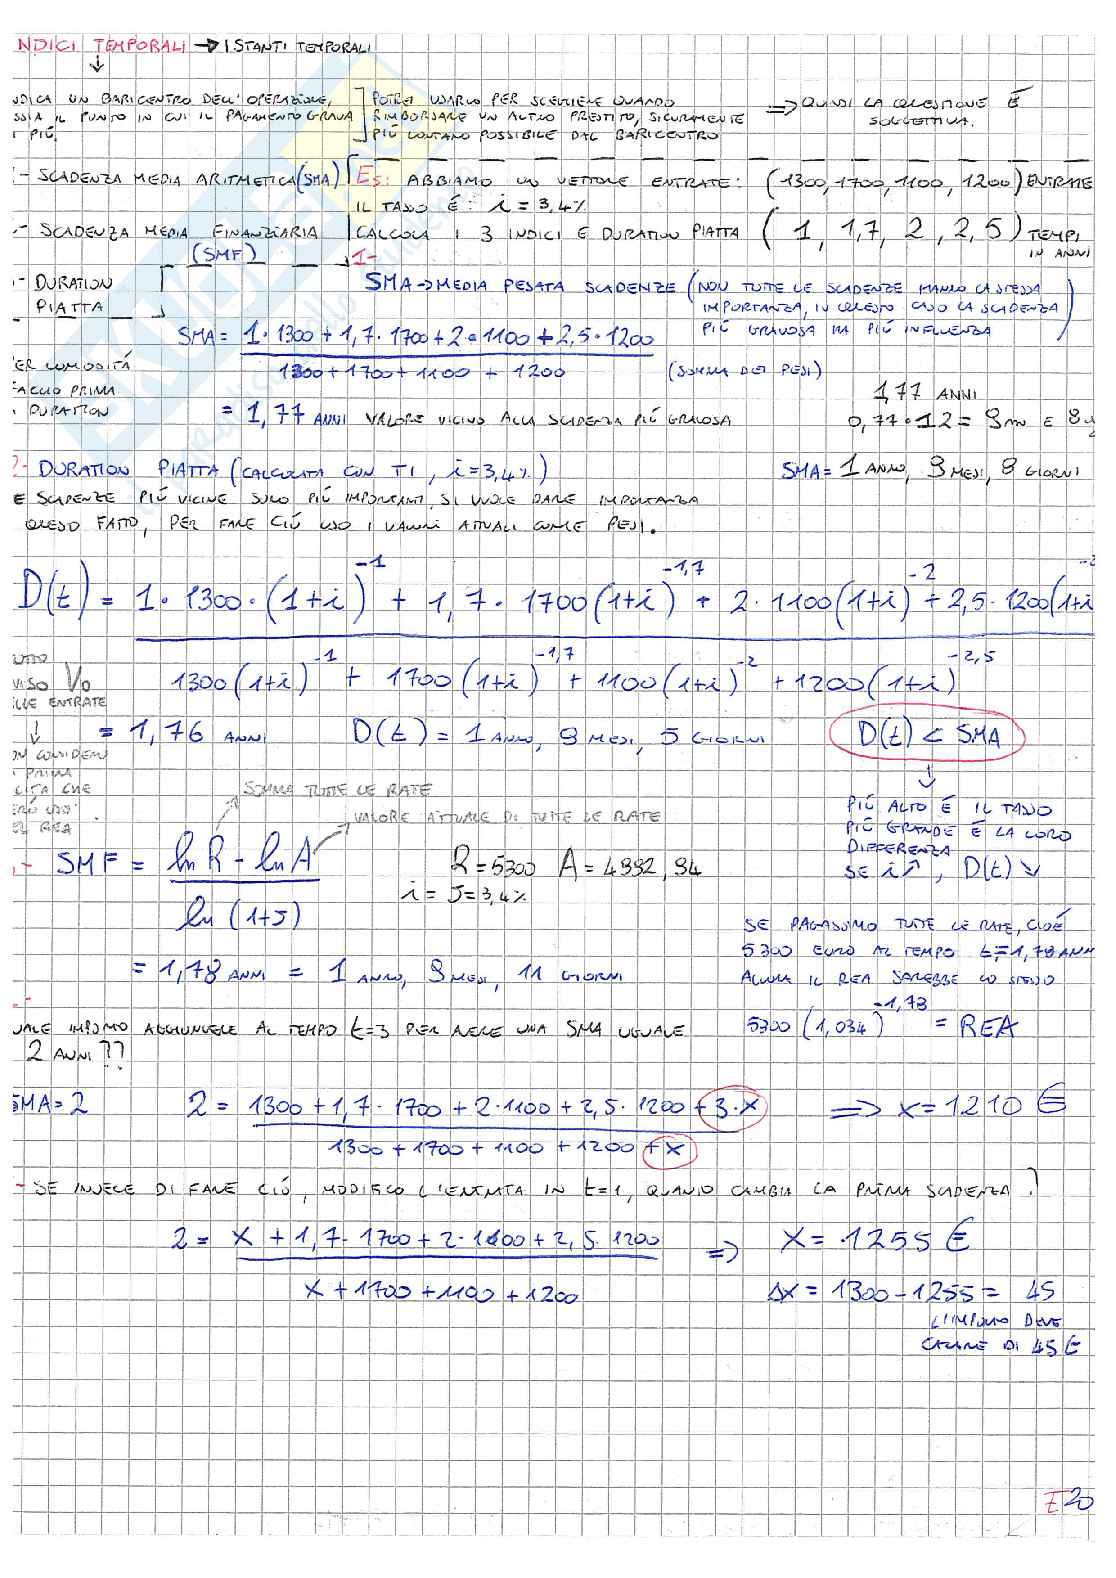 NDICI TEMPORALI → ISTANTI TEMPORALI
↓
NDICA UN BARICENTRO DELL'OPERAZIONE,
SSIA IL PUNTO IN CUI IL PAGAMENTO GRAVA
I PIÙ.
POTREI USARLO PER SCEGLIERE QUANDO
RIMBORSARE UN ALTRO PRESTITO, SICURAMENTE
PIÙ LONTANO POSSIBILE DAL BARICENTRO
⇒ QUINDI LA QUESTIONE É
SOGGETTIVA.
- SCADENZA MEDIA ARITMETICA (SMA)
- SCADENZA MEDIA FINANZIARIA
(SMF)
- DURATION
PIATTA
ES: ABBIAMO UN VETTORE ENTRATE: (1300, 1700, 1100, 1200) ENTRATE
IL TASSO É: i = 3,4%
CALCOLA I 3 INDICI E DURATION PIATTA (1, 1,7, 2, 2,5) TEMPI
IN ANNI
1-
SMA → MEDIA PESATA SCADENZE (NON TUTTE LE SCADENZE HANNO LA STESSA
IMPORTANZA, IN QUESTO CASO LA SCADENZA
PIÙ GRAVOSA HA PIÙ INFLUENZA)
SMA = 1·1300 + 1,7·1700 + 2·1100 + 2,5·1200
1300 + 1700 + 1100 + 1200 (SOMMA DEI PESI)
ER COMODITÁ
FACCIO PRIMA
DURATION
= 1,77 ANNI VALORE VICINO ALLA SCADENZA PIÙ GRAVOSA
1,77 ANNI
0,77·12 = 9m E 8g
2- DURATION PIATTA (CALCOLATA CON TI, i=3,4%)
SMA = 1 ANNO, 9 MESI, 8 GIORNI
E SCADENZE PIÙ VICINE SONO PIÙ IMPORTANTI, SI VUOLE DARE IMPORTANZA
QUESO FATTO, PER FARE CIÓ USO I VALORI ATTUALI COME PESI.
D(t) = 1·1300·(1+i)^-1 + 1,7·1700(1+i)^-1,7 + 2·1100(1+i)^-2 + 2,5·1200(1+i
1300(1+i)^-1 + 1700(1+i)^-1,7 + 1100(1+i)^-2 + 1200(1+i)^-2,5
UTTO
VISO V0
LLE ENTRATE
↓
ON CONSIDERO
PRIMA
CITA CHE
ERÓ USO
EL REA
= 1,76 ANNI D(t) = 1 ANNO, 9 MESI, 5 GIORNI
D(t) < SMA
↓
PIÙ ALTO É IL TASSO
PIÙ GRANDE É LA LORO
DIFFERENZA
SE i ↗, D(t) ↘
SOMMA TUTTE LE RATE
VALORE ATTUALE DI TUTTE LE RATE
- SMF = ln R - ln A
ln (1+J)
R = 5300 A = 4992,94
i = J = 3,4%
= 1,78 ANNI = 1 ANNO, 9 MESI, 11 GIORNI
SE PAGASSIMO TUTTE LE RATE, CIOÉ
5300 EURO AL TEMPO t=1,78 ANN
ALLORA IL REA SAREBBE LO STESSO
5300 (1,034)^-1,78 = REA
UALE IMPORTO AGGIUNGERE AL TEMPO t=3 PER AVERE UNA SMA UGUALE
2 ANNI ??
SMA = 2 2 = 1300 + 1,7·1700 + 2·1100 + 2,5·1200 + 3·X
1300 + 1700 + 1100 + 1200 + X
⇒ X = 1210 €
- SE INVECE DI FARE CIÓ, MODIFICO L'ENTRATA IN t=1, QUANTO CAMBIA LA PRIMA SCADENZA?
2 = X + 1,7·1700 + 2·1100 + 2,5·1200
X + 1700 + 1100 + 1200
⇒ X = 1255 €
ΔX = 1300 - 1255 = 45
L'IMPORTO DEVE
CALARE DI 45 €
E20